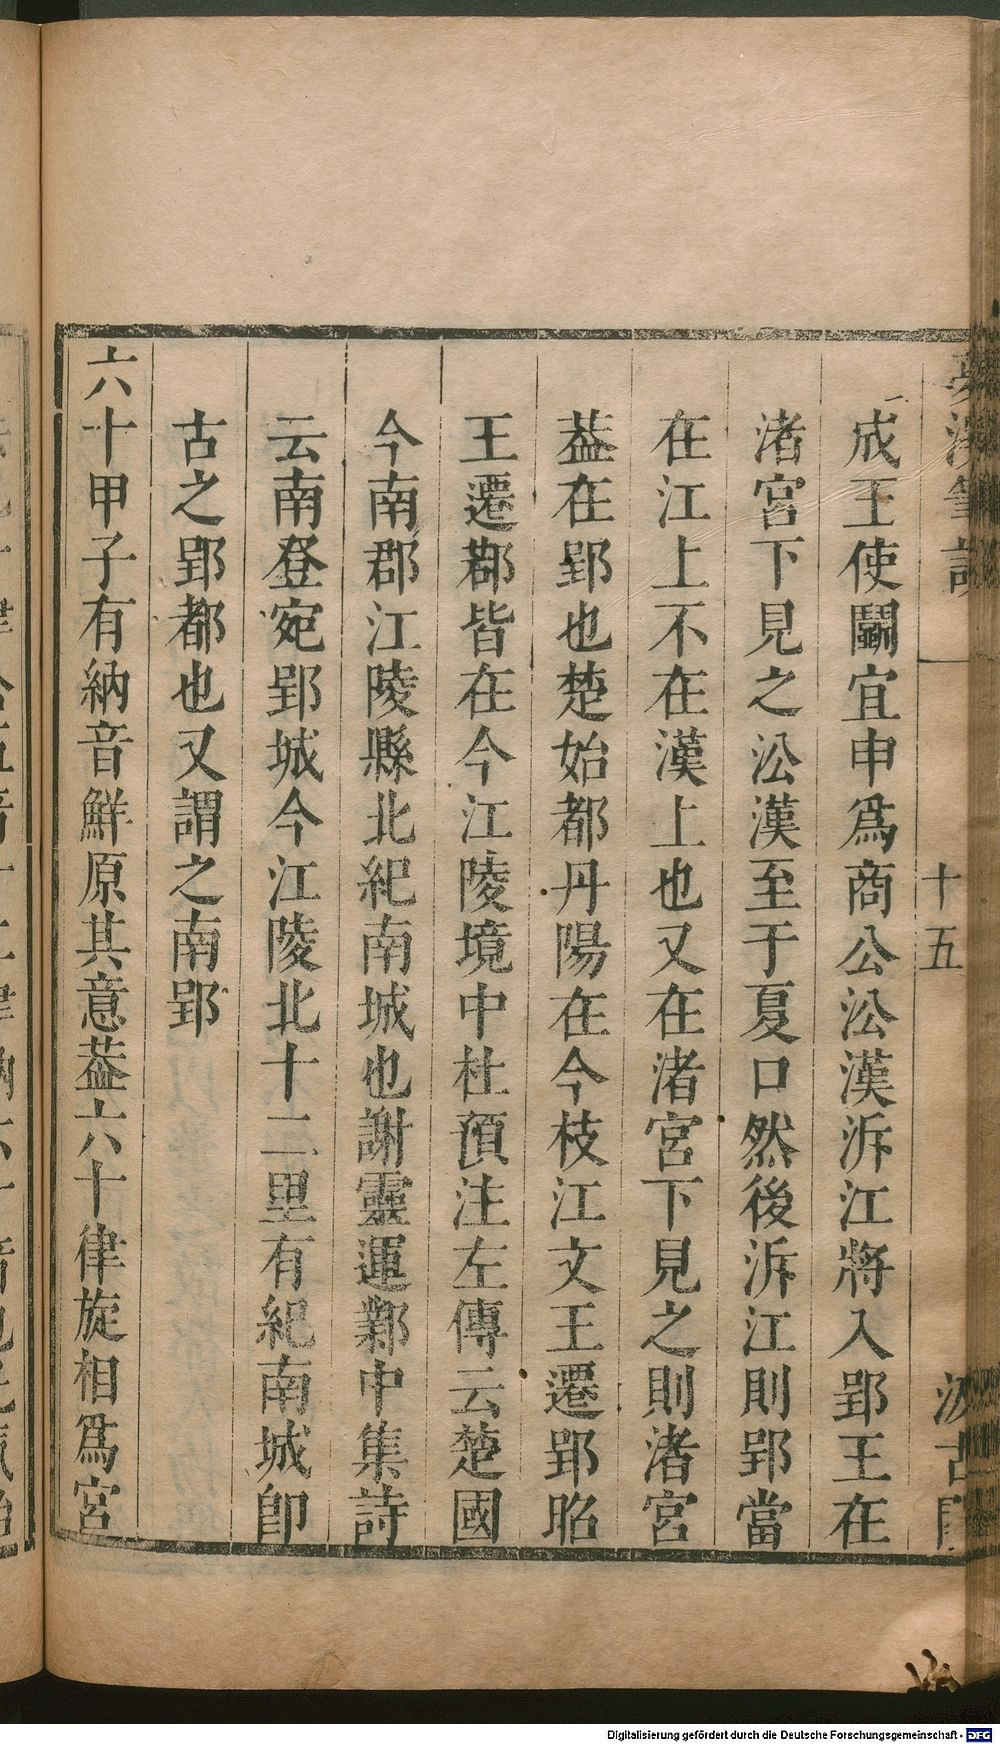 成王使鬬宜申爲商公㳂漢泝江將入郢王在
渚宮下見之㳂漢至于夏口然後泝江則郢當
在江上不在漢上也又在渚宮下見之則渚宮
葢在郢也楚始都丹陽在今枝江文王遷郢昭
王遷鄀皆在今江陵境中杜預注左傳云楚國
今南郡江陵縣北紀南城也謝靈運鄴中集詩
云南登宛郢城今江陵北十二里有紀南城卽
古之郢都也又謂之南郢
六十甲子有納音鮮原其意葢六十律旋相爲宮
十五
Digitalisierung gefördert durch die Deutsche Forschungsgemeinschaft - DFG